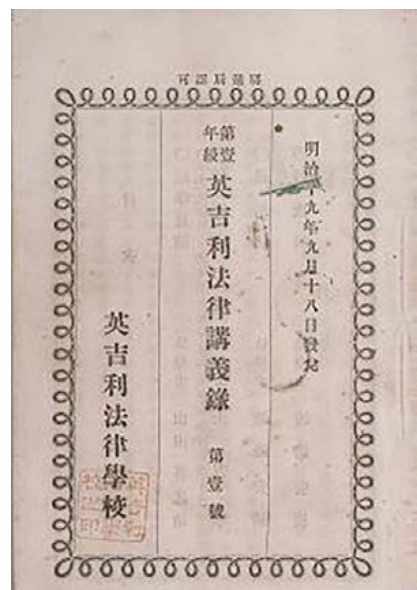 驛遞局認可
明治十九年九月十八日發兌
第壹年級 英吉利法律講義錄 第壹號
英吉利法律學校